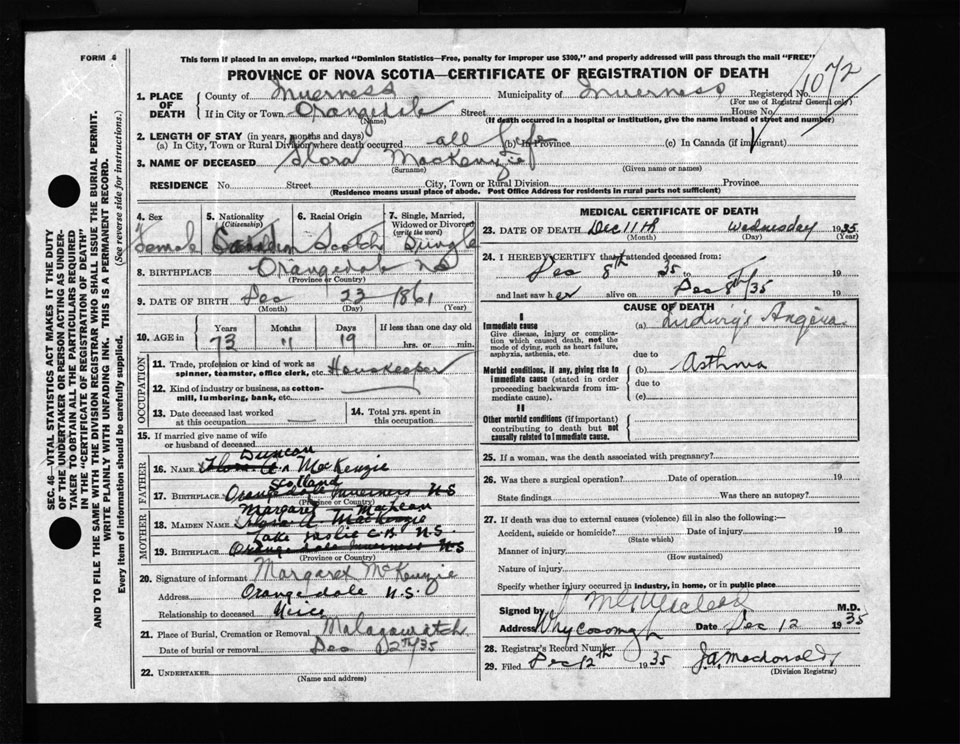 FORM 4
This form if placed in an envelope, marked "Dominion Statistics—Free, penalty for improper use $300," and properly addressed will pass through the mail "FREE"
PROVINCE OF NOVA SCOTIA—CERTIFICATE OF REGISTRATION OF DEATH
1072
1. PLACE OF DEATH
County of Inverness Municipality of Inverness Registered No.
(For use of Registrar General only)
If in City or Town Orangedale Street House No.
(Name) (If death occurred in a hospital or institution, give the name instead of street and number)
2. LENGTH OF STAY (in years, months and days)
(a) In City, Town or Rural Division where death occurred all life (b) In Province (c) In Canada (if immigrant)
3. NAME OF DECEASED Flora MacKenzie
(Surname) (Given name or names)
RESIDENCE No. Street City, Town or Rural Division Province
(Residence means usual place of abode. Post Office Address for residents in rural parts not sufficient)
4. Sex 5. Nationality (Citizenship) 6. Racial Origin 7. Single, Married, Widowed or Divorced (write the word)
Female Canadian Scotch Single
8. BIRTHPLACE Orangedale NS
(Province or Country)
9. DATE OF BIRTH Dec 22 1861
(Month) (Day) (Year)
10. AGE in Years Months Days If less than one day old
73 11 19 hrs. or min.
OCCUPATION
11. Trade, profession or kind of work as spinner, teamster, office clerk, etc. Houskeeper
12. Kind of industry or business, as cotton-mill, lumbering, bank, etc.
13. Date deceased last worked at this occupation
14. Total yrs. spent in this occupation
15. If married give name of wife or husband of deceased
FATHER
Duncan
16. NAME MacKenzie
Scotland
17. BIRTHPLACE Orangedale Inverness N S
(Province or Country)
MOTHER
Margaret MacLean
18. MAIDEN NAME Flora A. MacKenzie
C.B. N.S.
19. BIRTHPLACE Orangedale Inverness N S
(Province or Country)
20. Signature of informant Margaret McKenzie
Address Orangedale N.S.
Relationship to deceased Niece
21. Place of Burial, Cremation or Removal Malagawatch
Date of burial or removal Dec 12th/35
22. UNDERTAKER
(Name and address)
MEDICAL CERTIFICATE OF DEATH
23. DATE OF DEATH Dec 11th Wednesday 1935
(Month) (Day) (Year)
24. I HEREBY CERTIFY that I attended deceased from:
Dec 8th 35 to 19
and last saw her alive on Dec 8th/35 19
CAUSE OF DEATH
I
Immediate cause
Give disease, injury or complication which caused death, not the mode of dying, such as heart failure, asphyxia, asthenia, etc.
(a) Ludwig's Angina
due to
Morbid conditions, if any, giving rise to immediate cause (stated in order proceeding backwards from immediate cause).
(b) Asthma
due to
(c)
II
Other morbid conditions (if important) contributing to death but not causally related to immediate cause.
25. If a woman, was the death associated with pregnancy?
26. Was there a surgical operation? Date of operation 19
State findings Was there an autopsy?
27. If death was due to external causes (violence) fill in also the following:—
Accident, suicide or homicide? Date of injury 19
(State which)
Manner of injury
(How sustained)
Nature of injury
Specify whether injury occurred in industry, in home, or in public place
Signed by M.D.
Address Whycocomagh Date Dec 12 1935
28. Registrar's Record Number
29. Filed Dec 12th 1935 J.A. Macdonald
(Division Registrar)
SEC. 46—VITAL STATISTICS ACT MAKES IT THE DUTY
OF THE UNDERTAKER OR PERSON ACTING AS UNDER-
TAKER TO OBTAIN ALL THE PARTICULARS REQUIRED
IN THE "CERTIFICATE OF REGISTRATION OF DEATH"
AND TO FILE THE SAME WITH THE DIVISION REGISTRAR WHO SHALL ISSUE THE BURIAL PERMIT.
WRITE PLAINLY WITH UNFADING INK. THIS IS A PERMANENT RECORD.
Every item of information should be carefully supplied. (See reverse side for instructions.)